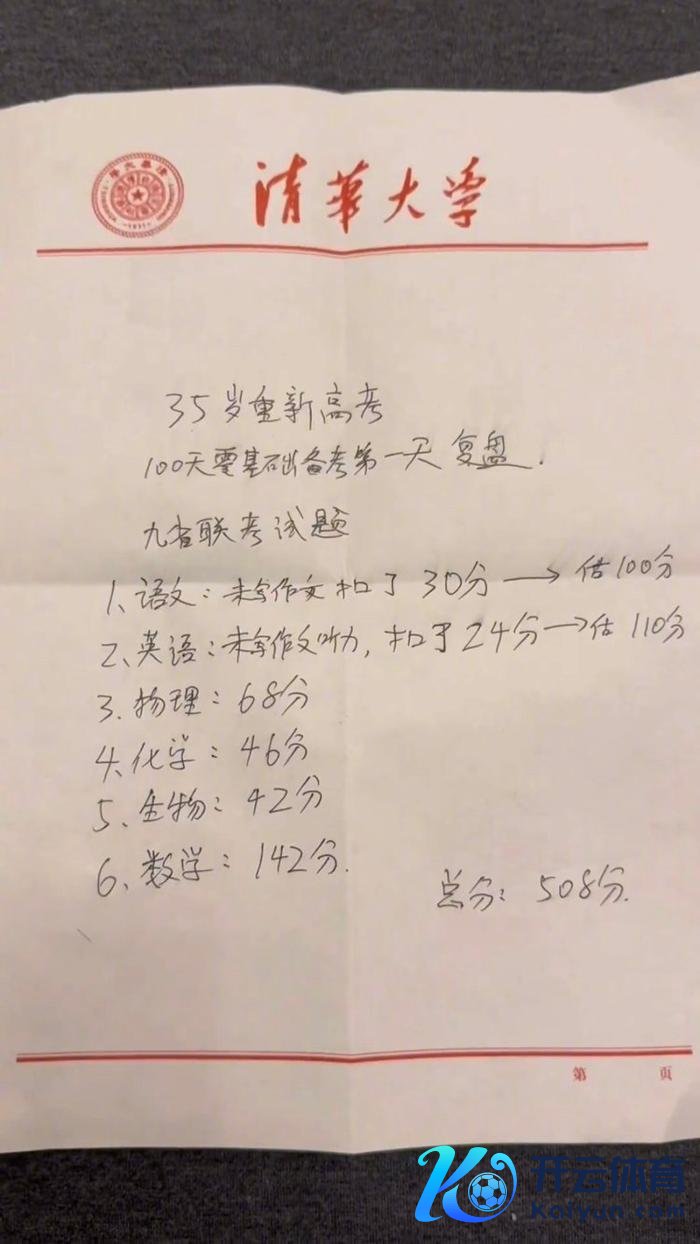 清華大学
35岁重新高考
100天零基础备考第一天 复盘.
九省联考试题
1、语文：未写作文扣了30分 → 估100分
2、英语：未写作文听力，扣了24分→估110分
3、物理：68分
4、化学：46分
5、生物：42分
6、数学：142分.
总分：508分.
第 页
开云体育
Kaiyun.com